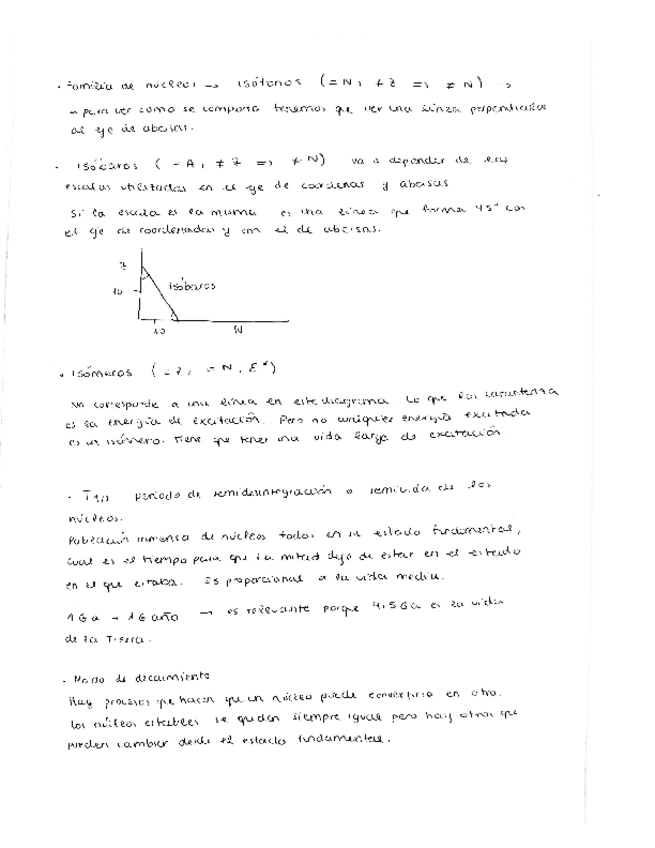 · Familia de núcleos → isótonos (= N, ≠ Z => ≠ N) →
→ para ver como se comporta tenemos que ver una línea perpendicular
al eje de abcisas.
· Isóbaros ( = A, ≠ Z => ≠ N) va a depender de las
escalas utilizadas en el eje de coordenas y abcisas
Si la escala es la misma es una línea que forma 45° con
el eje de coordenadas y con el de abcisas.
Z
10
isóbaros
10
N
· Isómeros ( = Z, = N, E*)
No corresponde a una línea en este diagrama. Lo que los caracteriza
es la energía de excitación. Pero no cualquier energía excitada
es un isómero. Tiene que tener una vida larga de excitación
· T1/2 período de semidesintegración o semivida de los
núcleos.
Población inmensa de núcleos todos en su estado fundamental,
cual es el tiempo para que la mitad deje de estar en el estado
en el que estaba. Es proporcional a la vida media.
1Ga → 1G año → es relevante porque 4.5Ga es la vida
de la Tierra.
· Modo de decaimiento
Hay procesos que hacen que un núcleo puede convertirse en otro.
Los núcleos estables se quedan siempre igual pero hay otros que
pueden cambiar desde el estado fundamental.